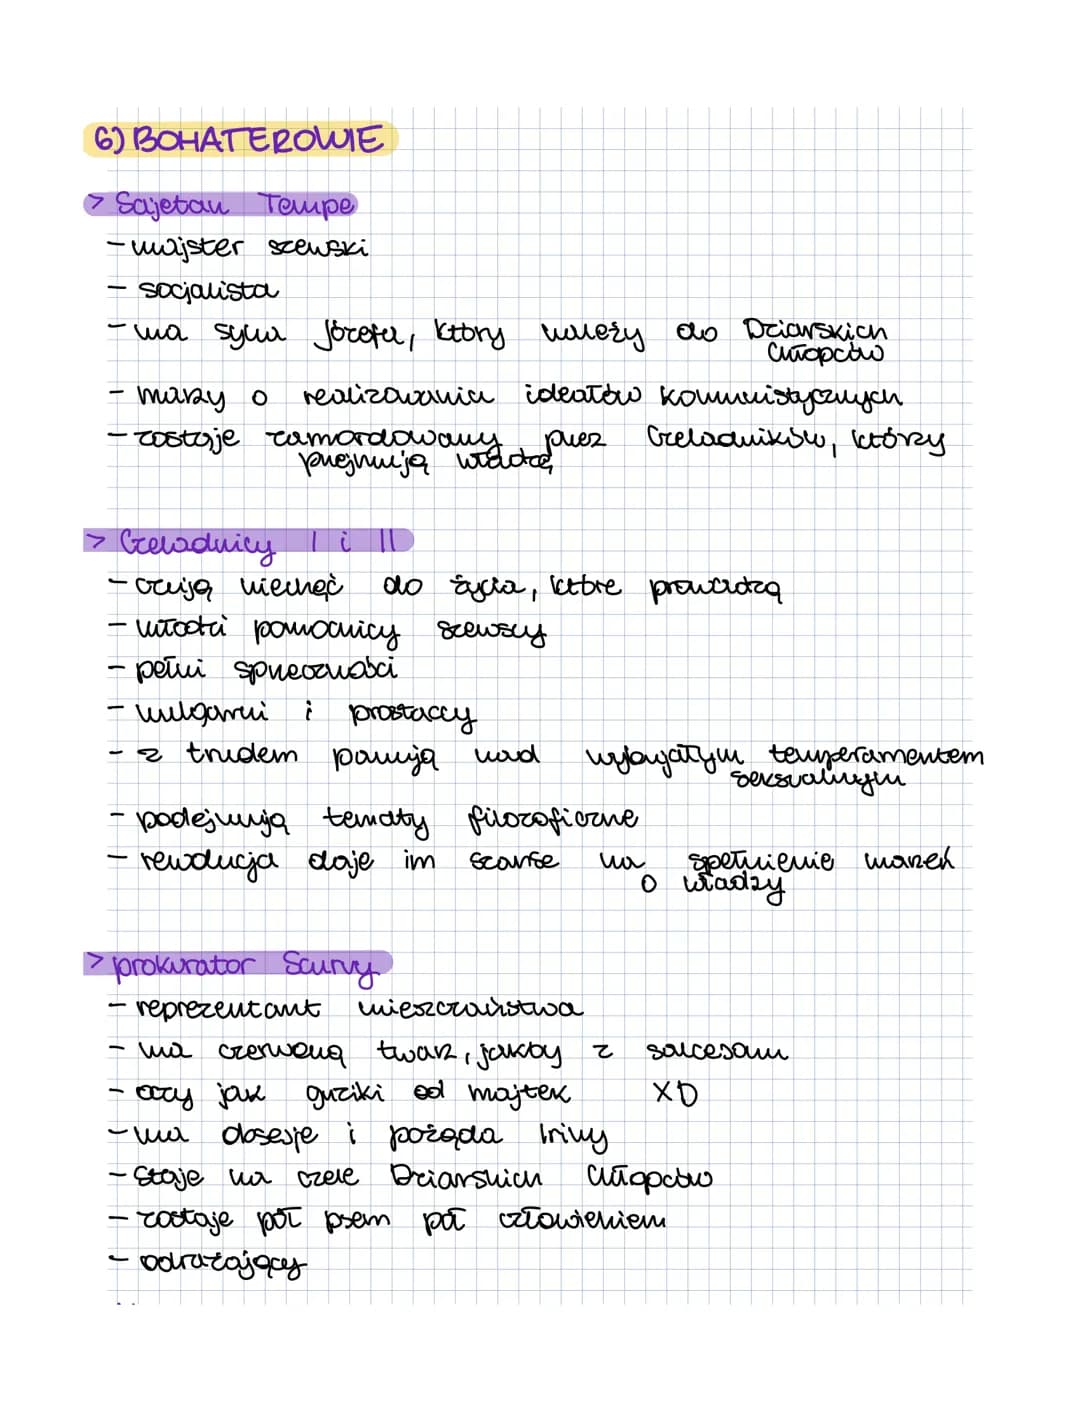 6) BOHATEROWIE
> Sajetan Tempe
- majster szewski
- socjalista
- ma syna Józefa, który należy do Dziarskich
Chłopców
- marzy o realizowaniu ideałów komunistycznych
- zostaje zamordowany przez Czeladników, którzy
przejmują władzę
> Czeladnicy I i II
- czują niechęć do życia, które prowadzą
- młodzi pomocnicy szewscy
- pełni sprzeczności
- wulgarni i prostaccy
- z trudem panują nad wybujałym temperamentem
seksualnym
- podejmują tematy filozoficzne
- rewolucja daje im szanse na spełnienie marzeń
o władzy
> prokurator Scurvy
- reprezentant mieszczaństwa
- ma czerwoną twarz, jakby z salcesonu
- oczy jak guziki od majtek XD
- ma obsesje i pożąda Iriny
- staje na czele Dziarskich Chłopców
- zostaje pół psem pół człowiekiem
- odrażający